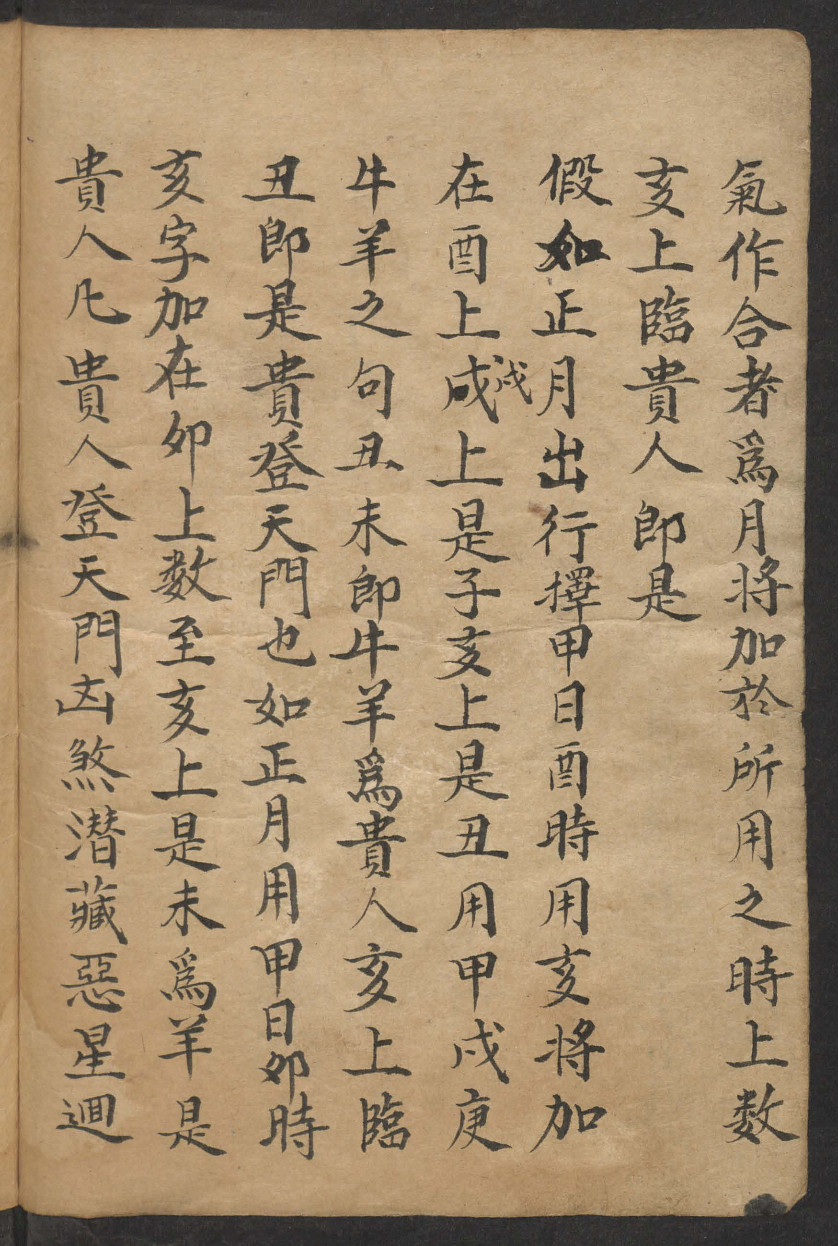 氣作合者為月将加於所用之時上数
亥上臨貴人即是
假如正月出行擇甲日酉時用亥將加
在酉上戍戍上是子亥上是丑用甲戍庚
牛羊之句丑未即牛羊爲貴人亥上臨
丑即是貴登天門也如正月用甲日卯時
亥字加在卯上数至亥上是未爲羊是
貴人凡貴人登天門凶煞潜藏惡星迴